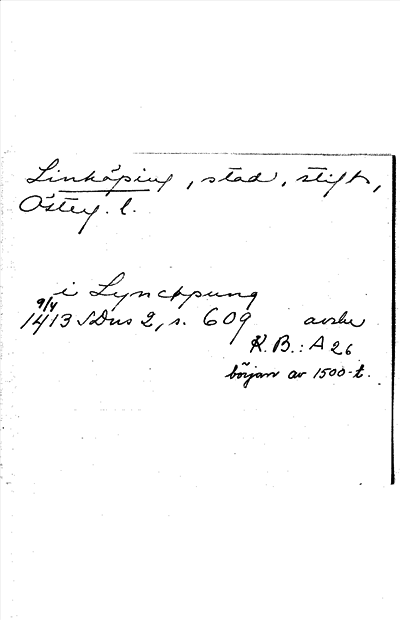 Linköping, stad, stift,
Österg. l.
i Lynchpung
9/4
1413 SDns 2, s. 609 avskr
K.B.: A 26
början av 1500-t.